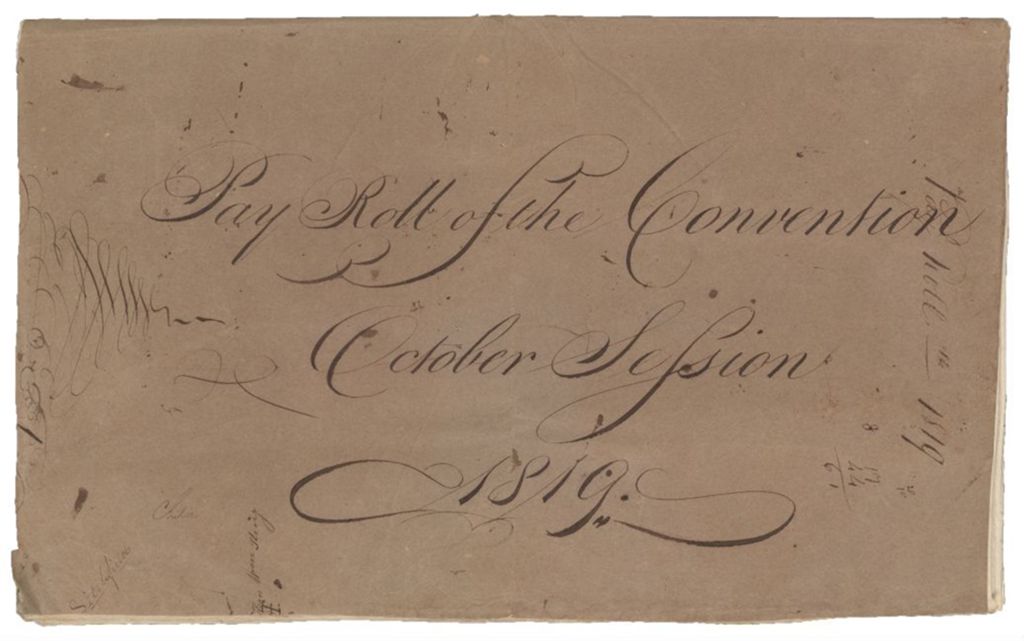 Pay Roll of the Convention
October Session
1819.
roll
1819
8